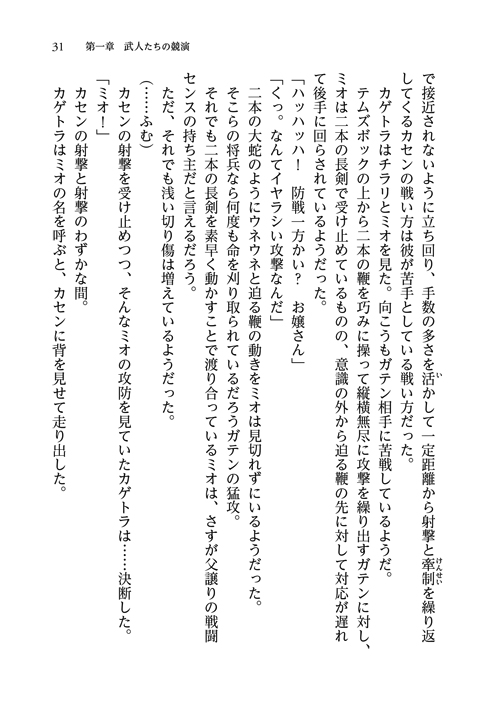 31　第一章　武人たちの競演
で接近されないように立ち回り、手数の多さを活かして一定距離から射撃と牽制を繰り返
してくるカセンの戦い方は彼が苦手としている戦い方だった。
カゲトラはチラリとミオを見た。向こうもガテン相手に苦戦しているようだ。
テムズボックの上から二本の鞭を巧みに操って縦横無尽に攻撃を繰り出すガテンに対し、
ミオは二本の長剣で受け止めているものの、意識の外から迫る鞭の先に対して対応が遅れ
て後手に回らされているようだった。
「ハッハッハ！　防戦一方かい？　お嬢さん」
「くっ。なんてイヤラシい攻撃なんだ」
二本の大蛇のようにウネウネと迫る鞭の動きをミオは見切れずにいるようだった。
そこらの将兵なら何度も命を刈り取られているだろうガテンの猛攻。
それでも二本の長剣を素早く動かすことで渡り合っているミオは、さすが父譲りの戦闘
センスの持ち主だと言えるだろう。
ただ、それでも浅い切り傷は増えているようだった。
（……ふむ）
カセンの射撃を受け止めつつ、そんなミオの攻防を見ていたカゲトラは……決断した。
「ミオ！」
カセンの射撃と射撃のわずかな間。
カゲトラはミオの名を呼ぶと、カセンに背を見せて走り出した。